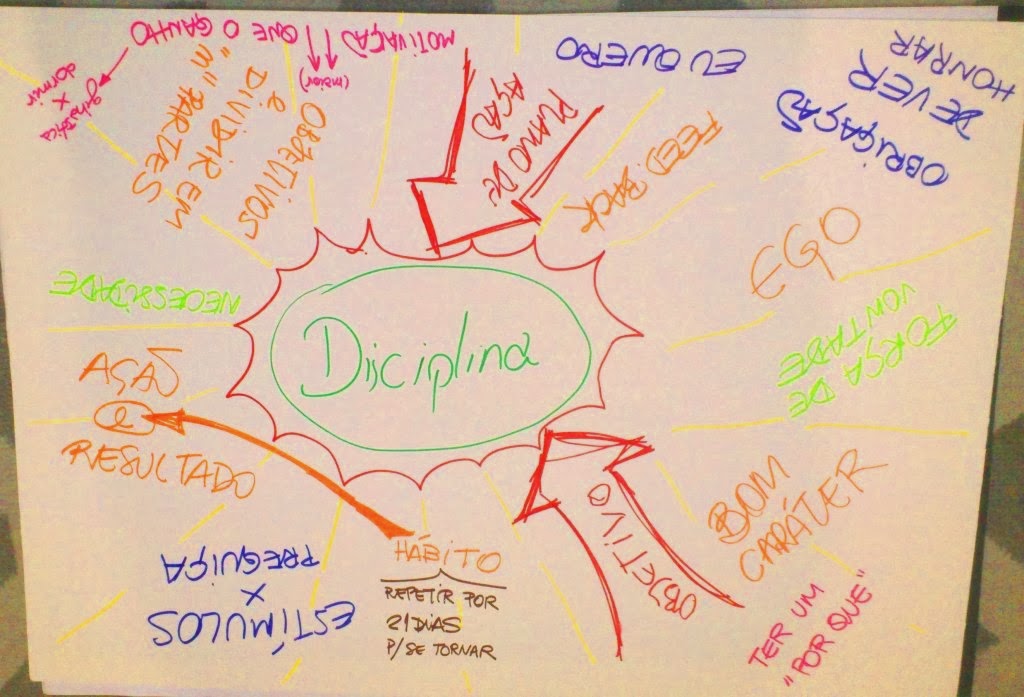 Disciplina
MOTIVAÇÃO QUE O GANHO
(maior)
ginástica
x
dormir
OBJETIVOS
e
DIVIDIR EM
"m" PARTES
PLANO DE
AÇÃO
FEED BACK
EU QUERO
OBRIGAÇÃO
DEVER
HONRAR
EGO
FORÇA DE
VONTADE
BOM
CARÁTER
TER UM
"POR QUE"
OBJETIVO
HÁBITO
REPETIR POR
21 DIAS
P/ SE TORNAR
ESTÍMULOS
X
PREGUIÇA
AÇÃO
e
RESULTADO
NECESSIDADE